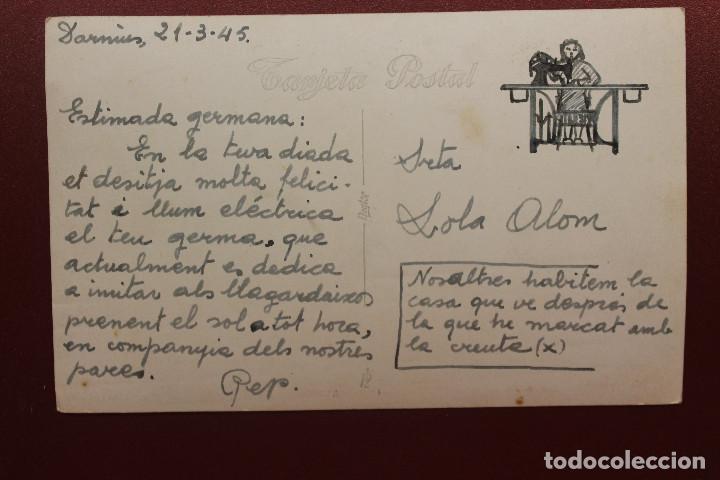 Darnius, 21-3-45.
Tarjeta Postal
Estimada germana:
En la teva diada
et desitja molta felici-
tat i llum eléctrica
el teu germa, que
actualment es dedica
a imitar als llagardaixos
prenent el sol a tot hora,
en companyia dels nostres
pares.
Pep.
Srta
Lola Alom
Nosaltres habitem la
casa que ve després de
la que he marcat amb
la creueta (x)
todocoleccion.net